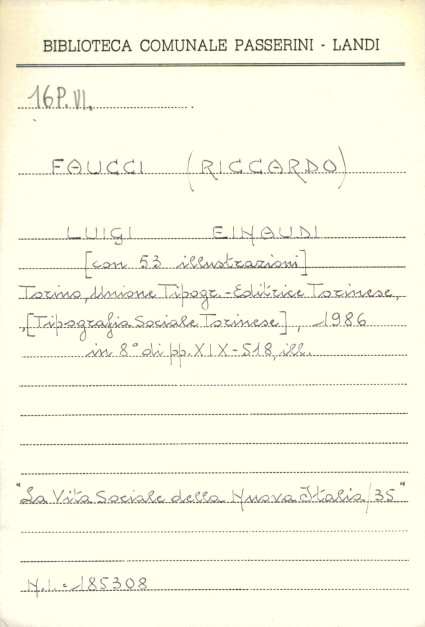 BIBLIOTECA COMUNALE PASSERINI - LANDI
16P.VI.
FAUCCI (RICCARDO)
LUIGI EINAUDI
[con 53 illustrazioni]
Torino, Unione Tipogr.-Editrice Torinese,
[Tipografia Sociale Torinese], 1986
in 8° di pp. XIX-518, ill.
"La Vita Sociale della Nuova Italia/35"
N.I. = 185308